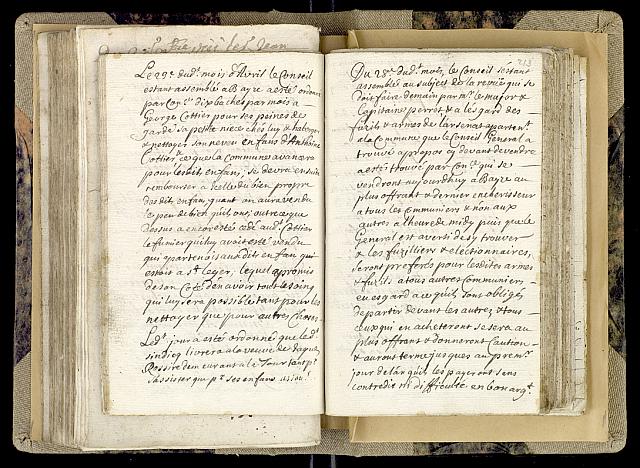 Le 29e dudt mois d'Avril le Conseil
estant assemblé a Bayze a esté ordonné
par Con.. dix baches par mois a
George Cottier pour ses peines de
garde sa petite niece chés luy & haberger
& nettoyer son neveu enfans d'Anthoine
Cottier & ce que la Commune avancera
pour lesdit enfans, se devra en suite
rembourser a Icelle du bien propre
desdit enfans, quant on aura vendu
le peu de bien quils ont, outre que
dessus a encor esté cédé audt Cottier
le fumier qui luy avoit esté vendu
qui appartenoit auxdits enfans qui
estoit a St Leger, lequel a promis
de son Coté d'en avoir tout le soing
qui luy sera possible tant pour les
nettoyer que pour autres Choses
Ledt jour a esté ordonné que led.
sindicq livrera a la veuve de Jaques
Rossire demeurant a la Tour
s'assister que pr ses enfans
213
Du 28e dudt mois, le Conseil s'estant
assemblé au subject de la reveüe qui se
doit faire demain par mr le major &
Capitaine perret & a legard des
füsils & armes de larsenat apparten.
a la Commune que le Conseil General a
trouvé a propos cy devant de vendre
a esté trouvé par Con.. qui se
vendront aujourdhuy a Bayze au
plus offrant & dernier encherisseur
a tous les Communiers & non aux
autres a lheure de midy puis que le
General est averti de s'y trouver
& les fuzilliers & electionnaires,
seront preferés pour lesdites armes
& fuzils a tous autres Communiers
en esgard a ce quils sont obligés
de partir devant les autres & tous
ceux qui en acheteront se sera au
plus offrant & donneront Caution
& auront terme jusques au premr
jour de lan quils les payeront sens
contredit ni difficulté en bon argt